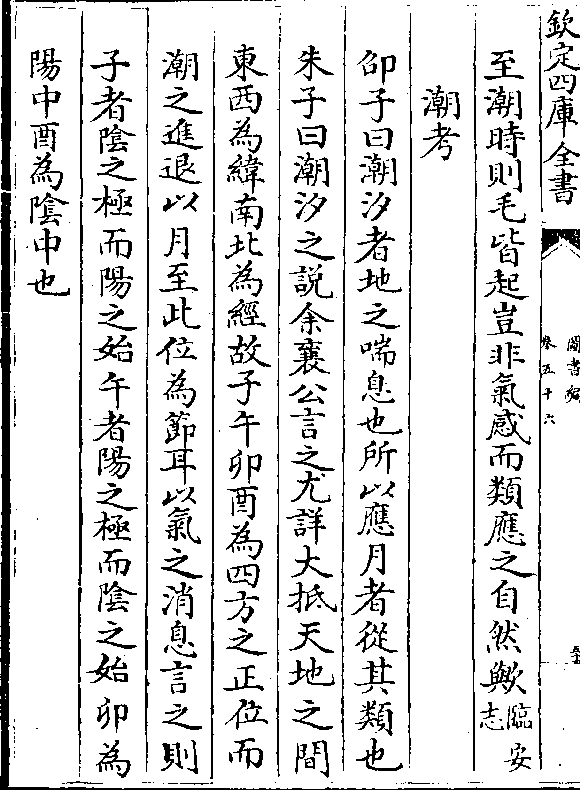 欽定四庫全書
圖書編
卷五十六
至潮時則毛皆起豈非氣感而類應之自然歟臨安志
潮考
邵子曰潮汐者地之喘息也所以應月者從其類也
朱子曰潮汐之說余襄公言之尤詳大抵天地之間
東西為緯南北為經故子午卯酉為四方之正位而
潮之進退以月至此位為節耳以氣之消息言之則
子者陰之極而陽之始午者陽之極而陰之始卯為
陽中酉為陰中也